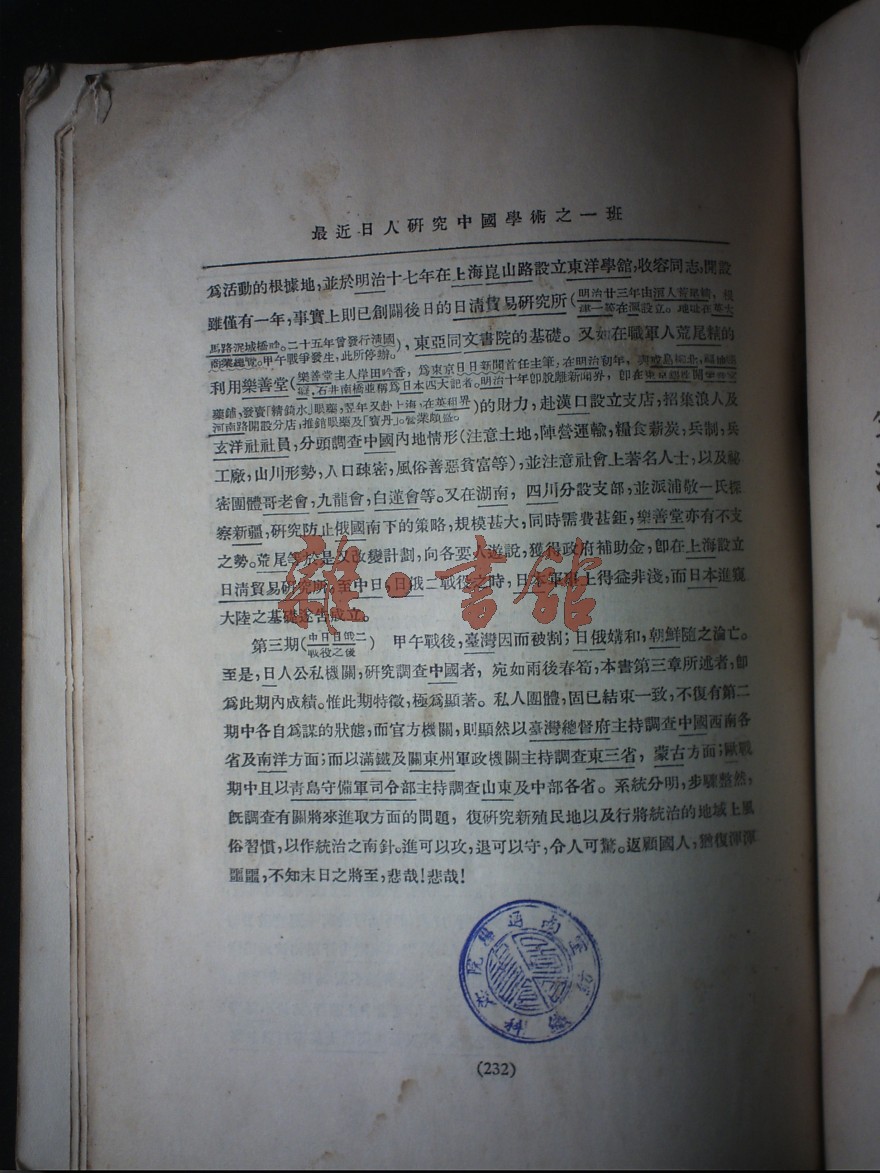 最近日人研究中國學術之一班
為活動的根據地,並於明治十七年在上海崑山路設立東洋學館,收容同志,開設
雖僅有一年,事實上則已創闢後日的日清貿易研究所(明治廿三年由浪人荒尾精,根
津一等在滬設立。地址在英大
馬路泥城橋畔。二十五年曾發行清國
商業總覽。甲午戰爭發生,此所停辦。),東亞同文書院的基礎。又如在職軍人荒尾精的
利用樂善堂(樂善堂主人岸田吟香,為東京日日新聞首任主筆,在明治初年,與
石井南橋並稱為日本四大記者。明治十年卽脫離新聞界,卽在東京銀座開樂善堂
藥鋪,發賣「精錡水」眼藥,翌年又赴上海,在英租界
河南路開設分店,推銷眼藥及「寶丹」。營業頗盛。)的財力,赴漢口設立支店,招集浪人及
玄洋社社員,分頭調查中國內地情形(注意土地,陣營運輸,糧食薪炭,兵制,兵
工廠,山川形勢,人口疎密,風俗善惡貧富等),並注意社會上著名人士,以及祕
密團體哥老會,九龍會,白蓮會等。又在湖南,四川分設支部,並派浦敬一氏探
察新疆,研究防止俄國南下的策略,規模甚大,同時需費甚鉅,樂善堂亦有不支
之勢。荒尾等於是又改變計劃,向各要人遊說,獲得政府補助金,卽在上海設立
日清貿易研究所,至中日,日俄二戰役之時,日本軍事上得益非淺,而日本進窺
大陸之基礎遂吿成立。
第三期(中日日俄二
戰役之後) 甲午戰後,臺灣因而被割;日俄媾和,朝鮮隨之淪亡。
至是,日人公私機關,研究調查中國者,宛如雨後春筍,本書第三章所述者,卽
為此期內成績。惟此期特徵,極為顯著。私人團體,固已結束一致,不復有第二
期中各自為謀的狀態,而官方機關,則顯然以臺灣總督府主持調查中國西南各
省及南洋方面;而以滿鐵及關東州軍政機關主持調查東三省,蒙古方面;歐戰
期中且以青島守備軍司令部主持調查山東及中部各省。系統分明,步驟整然,
旣調查有關將來進取方面的問題,復研究新殖民地以及行將統治的地域上風
俗習慣,以作統治之南針。進可以攻,退可以守,令人可驚。返顧國人,猶復渾渾
噩噩,不知末日之將至,悲哉!悲哉!
雜·書館
(232)